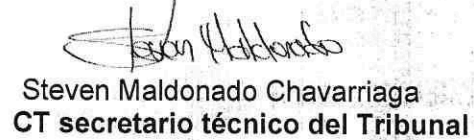 Steven Maldonado
Steven Maldonado Chavarriaga
CT secretario técnico del Tribunal